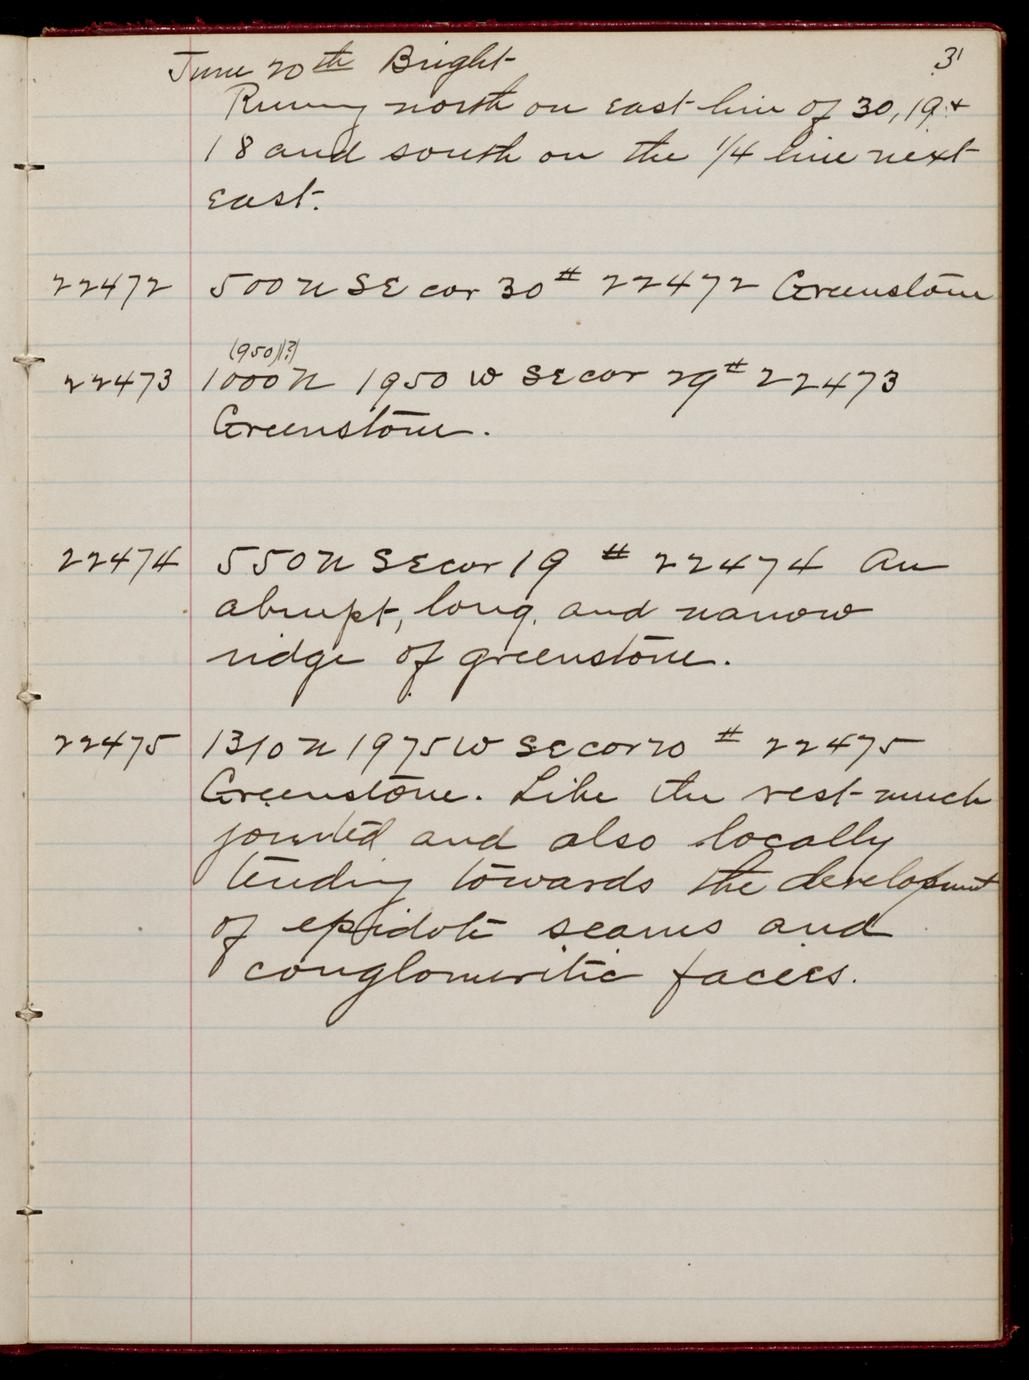 31
June 20th Bright
Runing north on east line of 30, 19 +
18 and south on the 1/4 line next
east.
22472 500 N SE cor 30 # 22472 Greenstone
(950)(?)
22473 1000 N 1950 W SE cor 29 # 22473
Greenstone.
22474 550 N SE cor 19 # 22474 An
abrupt, long, and narrow
ridge of greenstone.
22475 1310 N 1975 W SE cor 20 # 22475
Greenstone. Like the rest much
jointed and also locally
tending towards the development
of epidote seams and
conglomeritic facies.